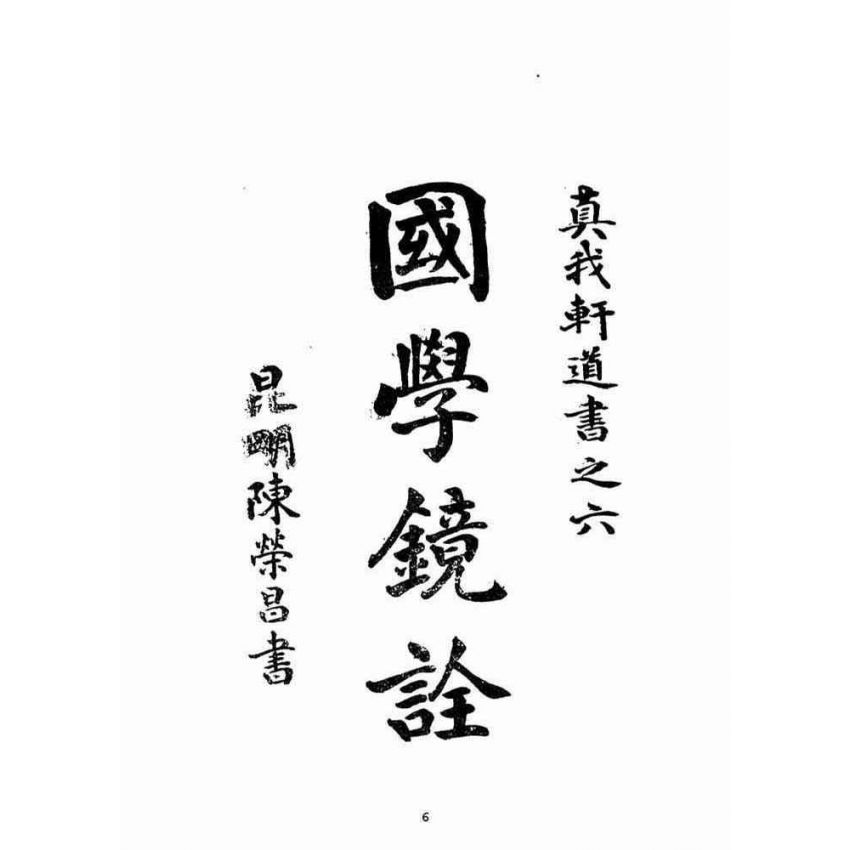 真我軒道書之六
國學鏡詮
昆明陳榮昌書
6